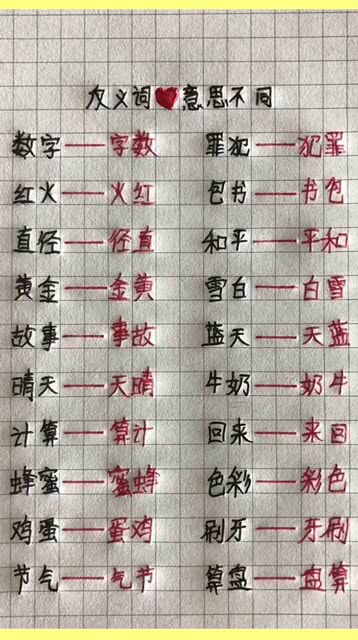 反义词❤意思不同
数字——字数 罪犯——犯罪
红火——火红 包书——书包
直径——径直 和平——平和
黄金——金黄 雪白——白雪
故事——事故 蓝天——天蓝
晴天——天晴 牛奶——奶牛
计算——算计 回来——来回
蜂蜜——蜜蜂 色彩——彩色
鸡蛋——蛋鸡 刷牙——牙刷
节气——气节 算盘——盘算